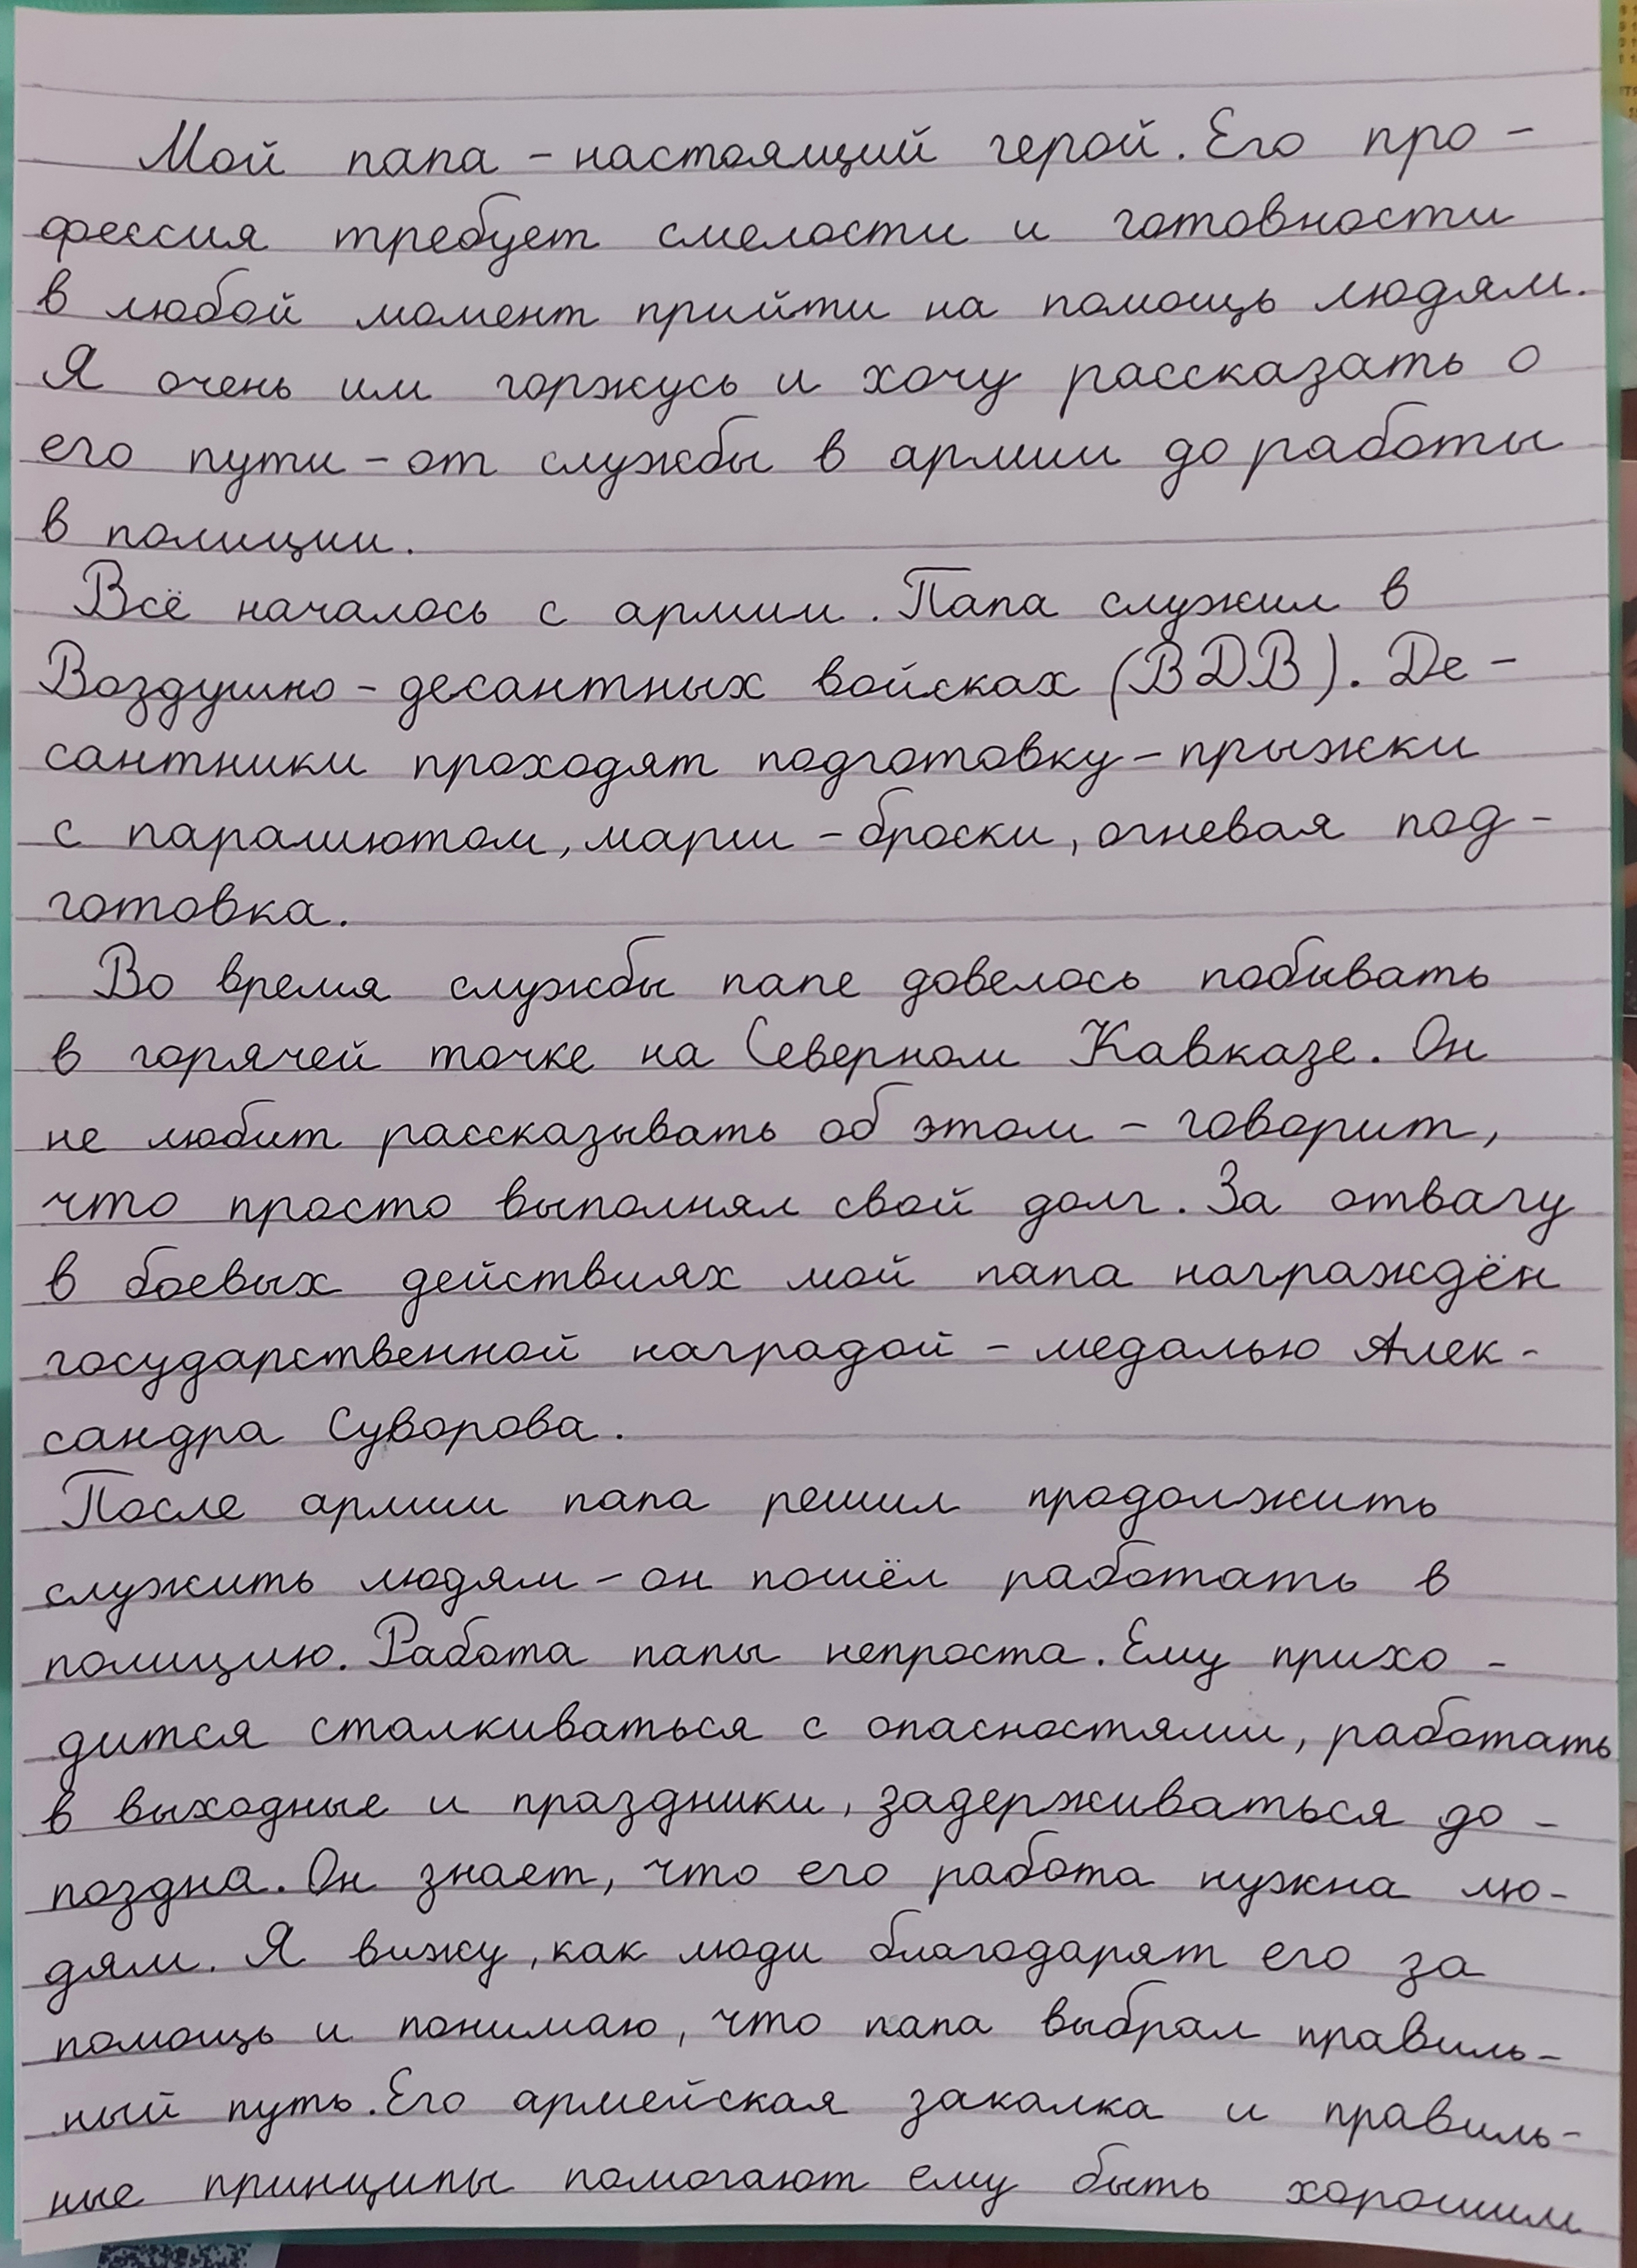 Мой папа - настоящий герой. Его про -
фессия требует смелости и готовности
в любой момент прийти на помощь людям.
Я очень им горжусь и хочу рассказать о
его пути - от службы в армии до работы
в полиции.
Всё началось с армии. Папа служил в
Воздушно - десантных войсках (ВДВ). Де -
сантники проходят подготовку - прыжки
с парашютом, марш - броски, огневая под -
готовка.
Во время службы папе довелось побывать
в горячей точке на Северном Кавказе. Он
не любит рассказывать об этом - говорит,
что просто выполнял свой долг. За отвагу
в боевых действиях мой папа награждён
государственной наградой - медалью Алек -
сандра Суворова.
После армии папа решил продолжить
служить людям - он пошёл работать в
полицию. Работа папы непроста. Ему прихо -
дится сталкиваться с опасностями, работать
в выходные и праздники, задерживаться до -
поздна. Он знает, что его работа нужна лю-
дям. Я вижу, как люди благодарят его за
помощь и понимаю, что папа выбрал правиль-
ный путь. Его армейская закалка и правиль-
ные принципы помогают ему быть хорошим